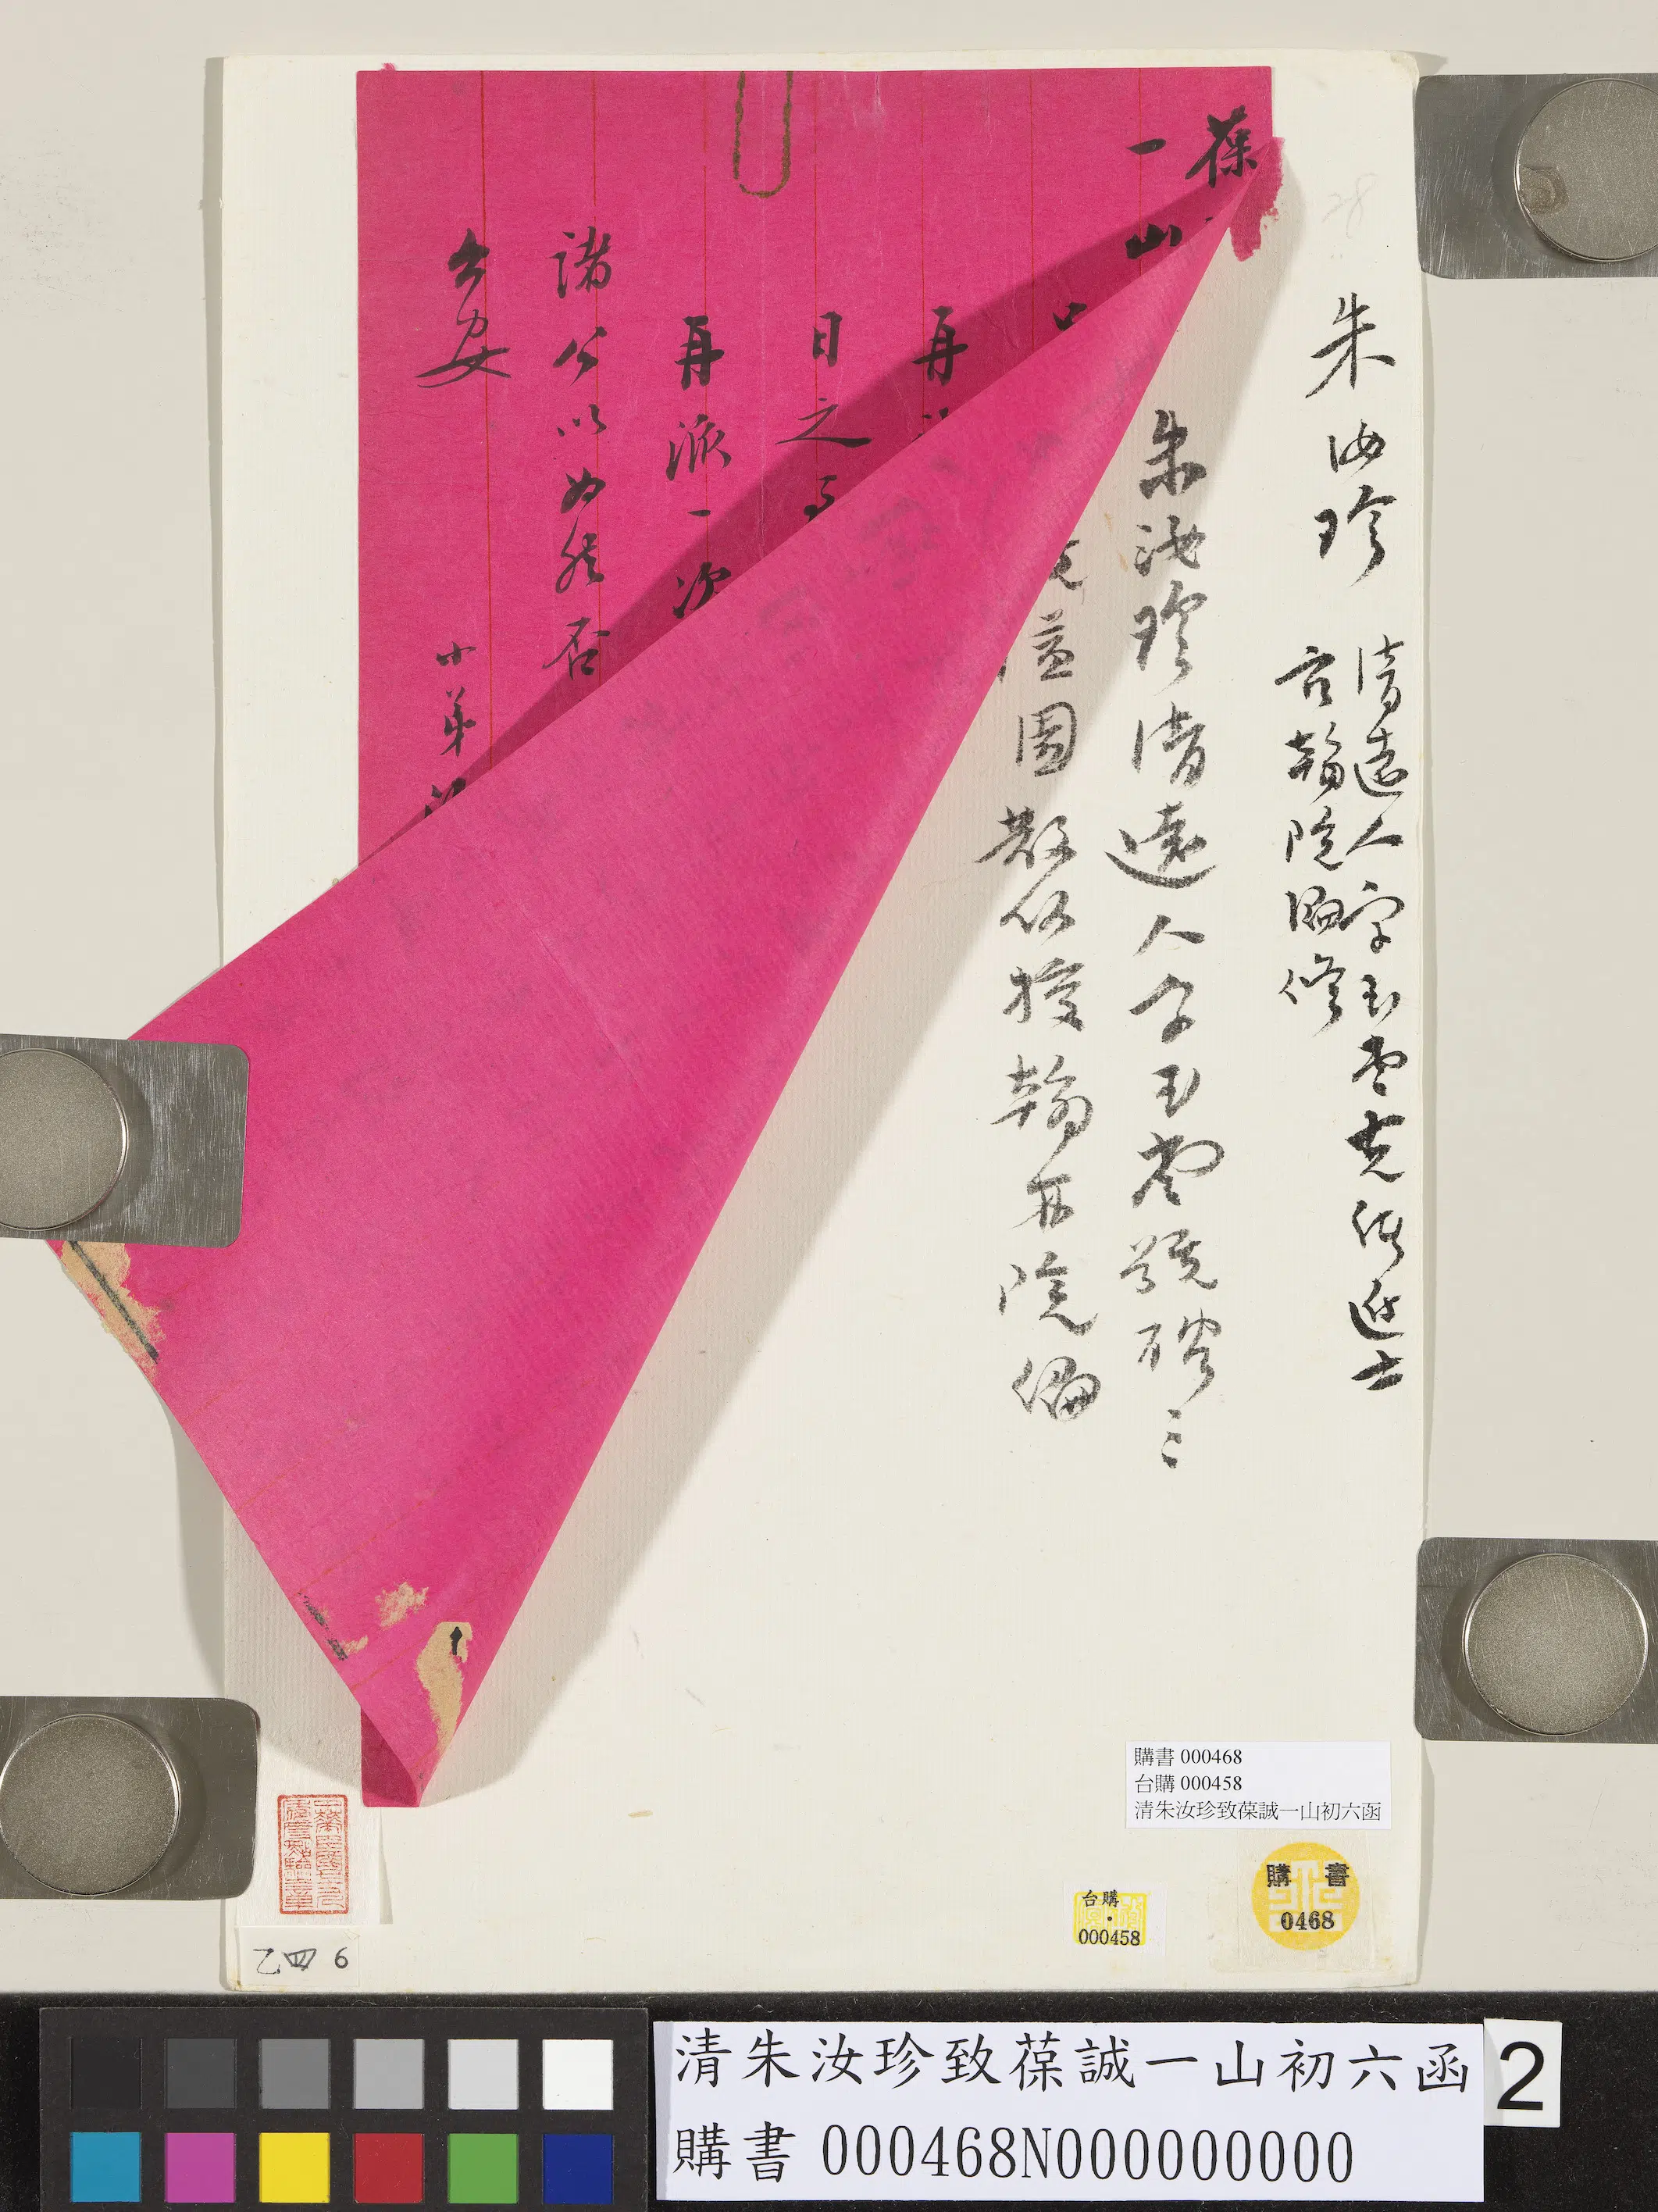 朱汝珍
清遠人字玉堂光緒進士
官翰院編修
朱汝珍清遠人字玉堂號聘三
隘園散館授翰林院編
葆
一山
再
日之
再派一次
諸公以為然否
台安
小弟
購書 000468
台購 000458
清朱汝珍致葆誠一山初六函
購書
0468
台購
000458
乙四 6
清朱汝珍致葆誠一山初六函
購書 000468N000000000
2